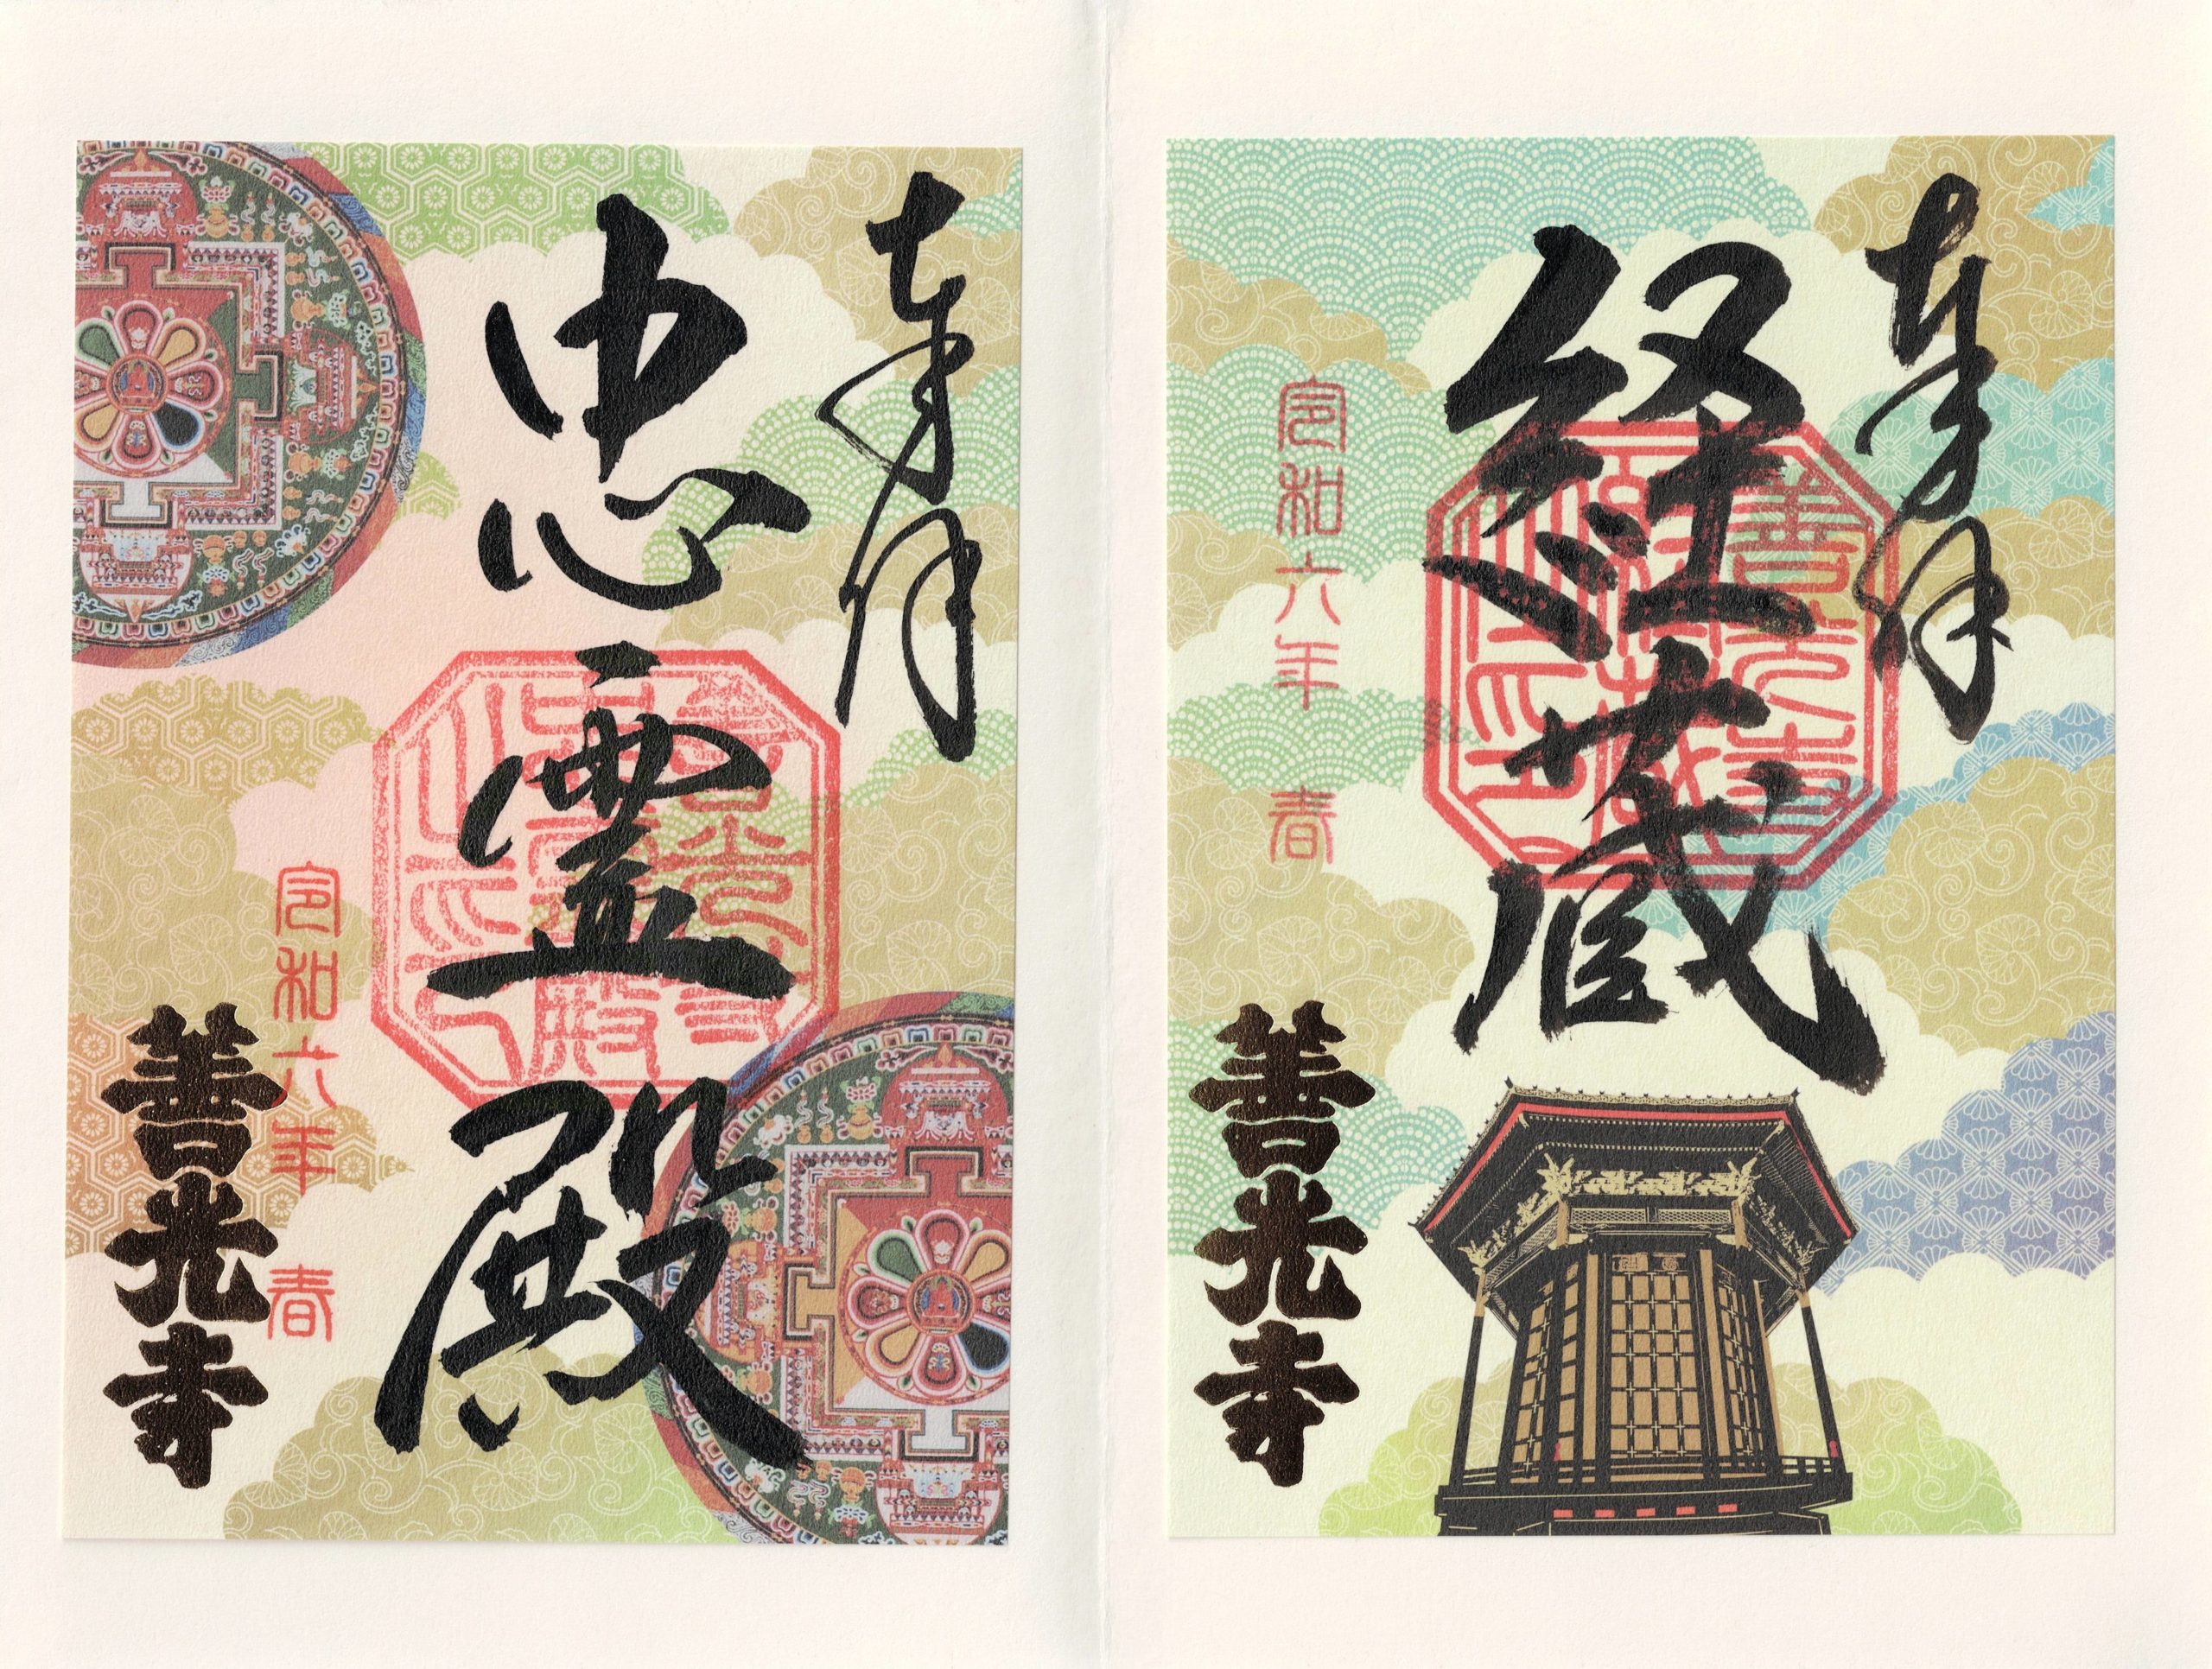 奉拝
経蔵
善光寺
令和六年 春
善光寺
奉拝
忠霊殿
善光寺
忠霊殿
令和六年 春
善光寺